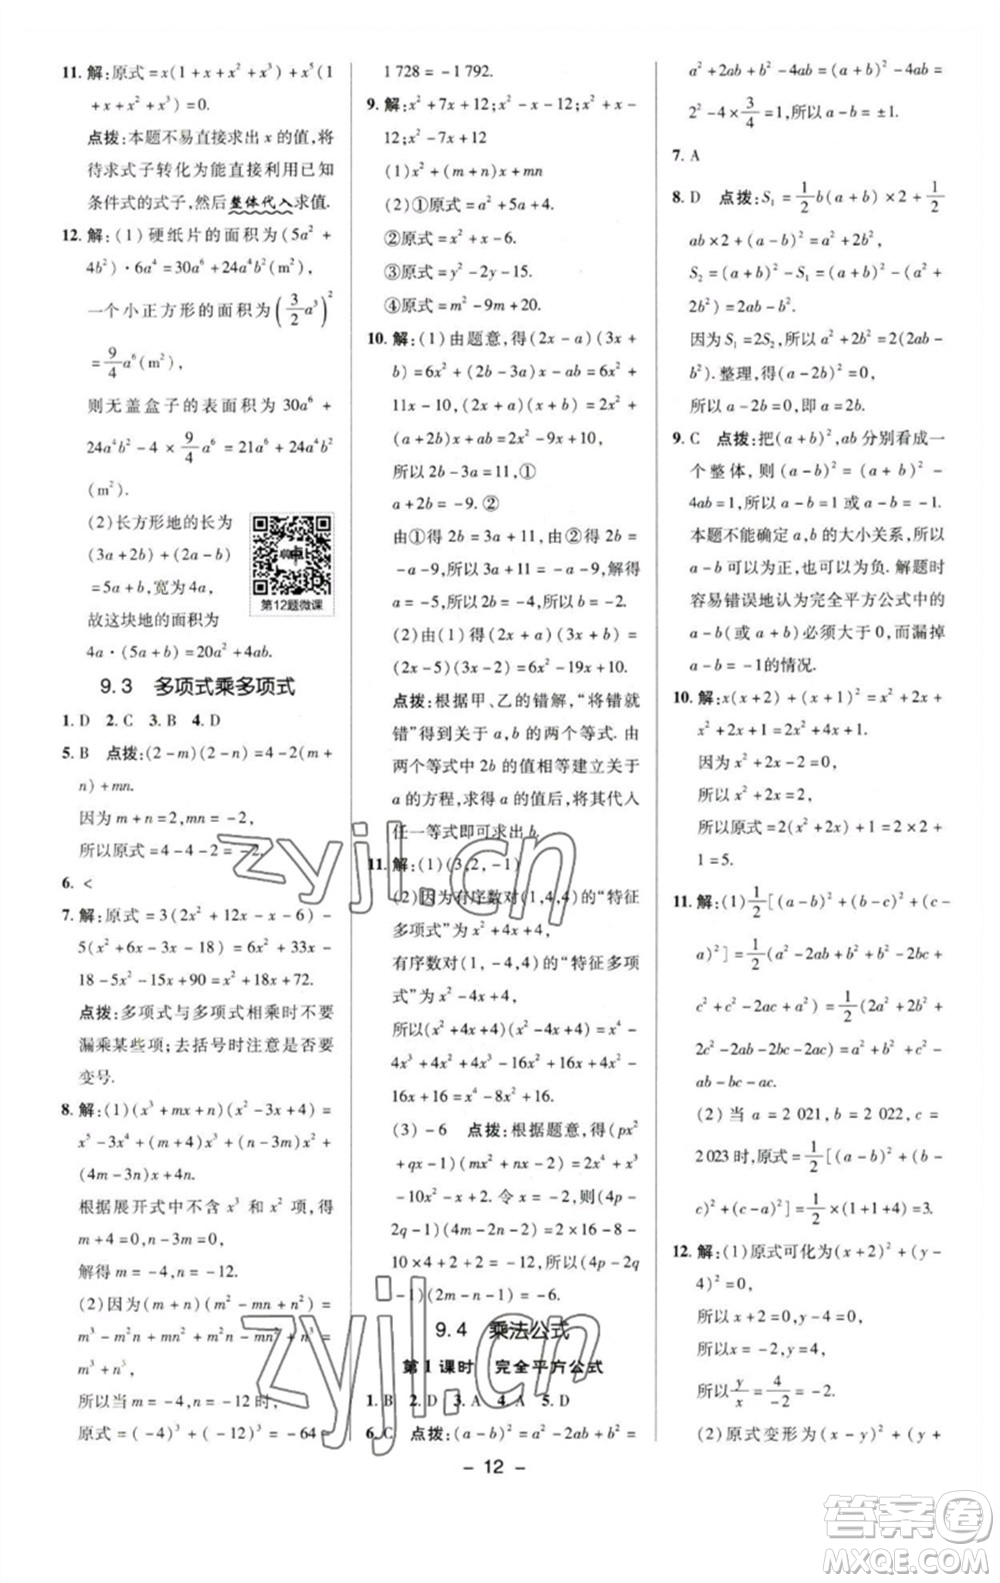 11. 解:原式=x(1+x+x²+x³)+x⁵(1
+x+x²+x³)=0.
点拨:本题不易直接求出 x 的值,将
待求式子转化为能直接利用已知
条件式的式子,然后整体代入求值.
12. 解:(1)硬纸片的面积为(5a²+
4b²)·6a⁴=30a⁶+24a⁴b²(m²),
一个小正方形的面积为(3/2 a³)²
=9/4 a⁶(m²),
则无盖盒子的表面积为 30a⁶+
24a⁴b²-4×9/4 a⁶=21a⁶+24a⁴b²
(m²).
(2)长方形地的长为
(3a+2b)+(2a-b)
=5a+b,宽为4a,
故这块地的面积为
4a·(5a+b)=20a²+4ab.
第12题微课
9.3 多项式乘多项式
1. D 2. C 3. B 4. D
5. B 点拨:(2-m)(2-n)=4-2(m+
n)+mn.
因为 m+n=2,mn=-2,
所以原式=4-4-2=-2.
6. <
7. 解:原式=3(2x²+12x-x-6)-
5(x²+6x-3x-18)=6x²+33x-
18-5x²-15x+90=x²+18x+72.
点拨:多项式与多项式相乘时不要
漏乘某些项;去括号时注意是否要
变号.
8. 解:(1)(x³+mx+n)(x²-3x+4)=
x⁵-3x⁴+(m+4)x³+(n-3m)x²+
(4m-3n)x+4n.
根据展开式中不含 x³ 和 x² 项,得
m+4=0,n-3m=0,
解得 m=-4,n=-12.
(2)因为(m+n)(m²-mn+n²)=
m³-m²n+mn²+m²n-mn²+n³=
m³+n³,
所以当 m=-4,n=-12 时,
原式=(-4)³+(-12)³=-64-
1 728=-1 792.
9. 解:x²+7x+12;x²-x-12;x²+x-
12;x²-7x+12
(1)x²+(m+n)x+mn
(2)①原式=a²+5a+4.
②原式=x²+x-6.
③原式=y²-2y-15.
④原式=m²-9m+20.
10. 解:(1)由题意,得(2x-a)(3x+
b)=6x²+(2b-3a)x-ab=6x²+
11x-10,(2x+a)(x+b)=2x²+
(a+2b)x+ab=2x²-9x+10,
所以 2b-3a=11,①
a+2b=-9.②
由①得 2b=3a+11,由②得 2b=
-a-9,所以 3a+11=-a-9.解得
a=-5,所以 2b=-4.所以b=-2.
(2)由(1)得(2x+a)(3x+b)=
(2x-5)(3x-2)=6x²-19x+10.
点拨:根据甲、乙的错解,“将错就
错”得到关于 a,b 的两个等式.由
两个等式中 2b 的值相等建立关于
a 的方程,求得 a 的值后,将其代入
任一等式即可求出 b.
11. 解:(1)(3,2,-1)
(2)因为有序数对(1,4,4)的“特征
多项式”为 x²+4x+4,
有序数对(1,-4,4)的“特征多项
式”为 x²-4x+4,
所以(x²+4x+4)(x²-4x+4)=
x⁴-4x³+4x²+4x³-16x²+16x+
4x²-16x+16=x⁴-8x²+16.
(3)-6 点拨:根据题意,得(px²
+qx-1)(mx²+nx-2)=2x⁴+x³
-10x²-x+2.令 x=-2,则(4p-
2q-1)(4m-2n-2)=2×16-8-
10×4+2+2=-12,所以(4p-2q
-1)(2m-n-1)=-6.
9.4 乘法公式
第1课时 完全平方公式
1. B 2. D 3. A 4. A 5. D
6. C 点拨:(a-b)²=a²-2ab+b²=
a²+2ab+b²-4ab=(a+b)²-4ab=
2²-4×3/4=1,所以 a-b=±1.
7. A
8. D 点拨:S₁=1/2 b(a+b)×2+1/2
ab×2+(a-b)²=a²+2b²,
S₂=(a+b)²-S₁=(a+b)²-(a²
+2b²)=2ab-b².
因为 S₁=2S₂,所以 a²+2b²=2(2ab-
b²).整理,得(a-2b)²=0,
所以 a-2b=0,所以 a=2b.
9. C 点拨:把(a+b)²,ab 分别看成一
个整体,则(a-b)²=(a+b)²-
4ab=1,所以 a-b=1 或 a-b=-1.
本题不能确定 a,b 的大小关系,所以
a-b 可能为正或为负.解题时
容易错误地认为完全平方公式中的
a-b(或b-a)必须大于 0,而漏掉
a-b=-1的情况.
10. 解:x(x+2)+(x+1)²=x²+2x+
x²+2x+1=2x²+4x+1.
因为 x²+2x-2=0,
所以 x²+2x=2.
所以原式=2(x²+2x)+1=2×2+
1=5.
11. 解:(1)1/2[(a-b)²+(b-c)²+(c-
a)²]=1/2(a²-2ab+b²+b²-2bc+
c²+c²-2ac+a²)=1/2(2a²+2b²+
2c²-2ab-2bc-2ac)=a²+b²+c²-
ab-bc-ac.
(2)当 a=2 021,b=2 022,c=
2 023时,原式=1/2[(a-b)²+(b-
c)²+(c-a)²]=1/2×(1+1+4)=3.
12. 解:(1)原式可化为(x+2)²+(y-
4)²=0,
所以 x+2=0,y-4=0,
所以 x=-2,y=4,
所以y/x=4/-2=-2.
(2)原式变形为(x-y)²+(y+
- 12 -
zyjl.cn
zyjl.cn
答案圈
MXQE.COM